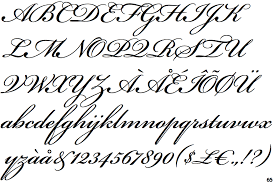 ABCDEFGHIJK
LMNOPQRSTU
VWXYZÀÅÉÎÕØÜ
abcdefghijklmnopqrstuvwx
yzàåéîõ&1234567890($£€.,!?)
65